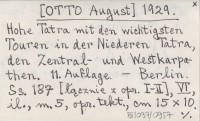 [OTTO August] 1929.
Hohe Tatra mit den wichtigsten
Touren in der Niederen Tatra,
den Zentral- und Westkarpa-
then. 11. Auflage. - Berlin.
Ss. 187 [łącznie z opr. I-II], VI,
il., m. 5, opr. tekt., cm 15 × 10.